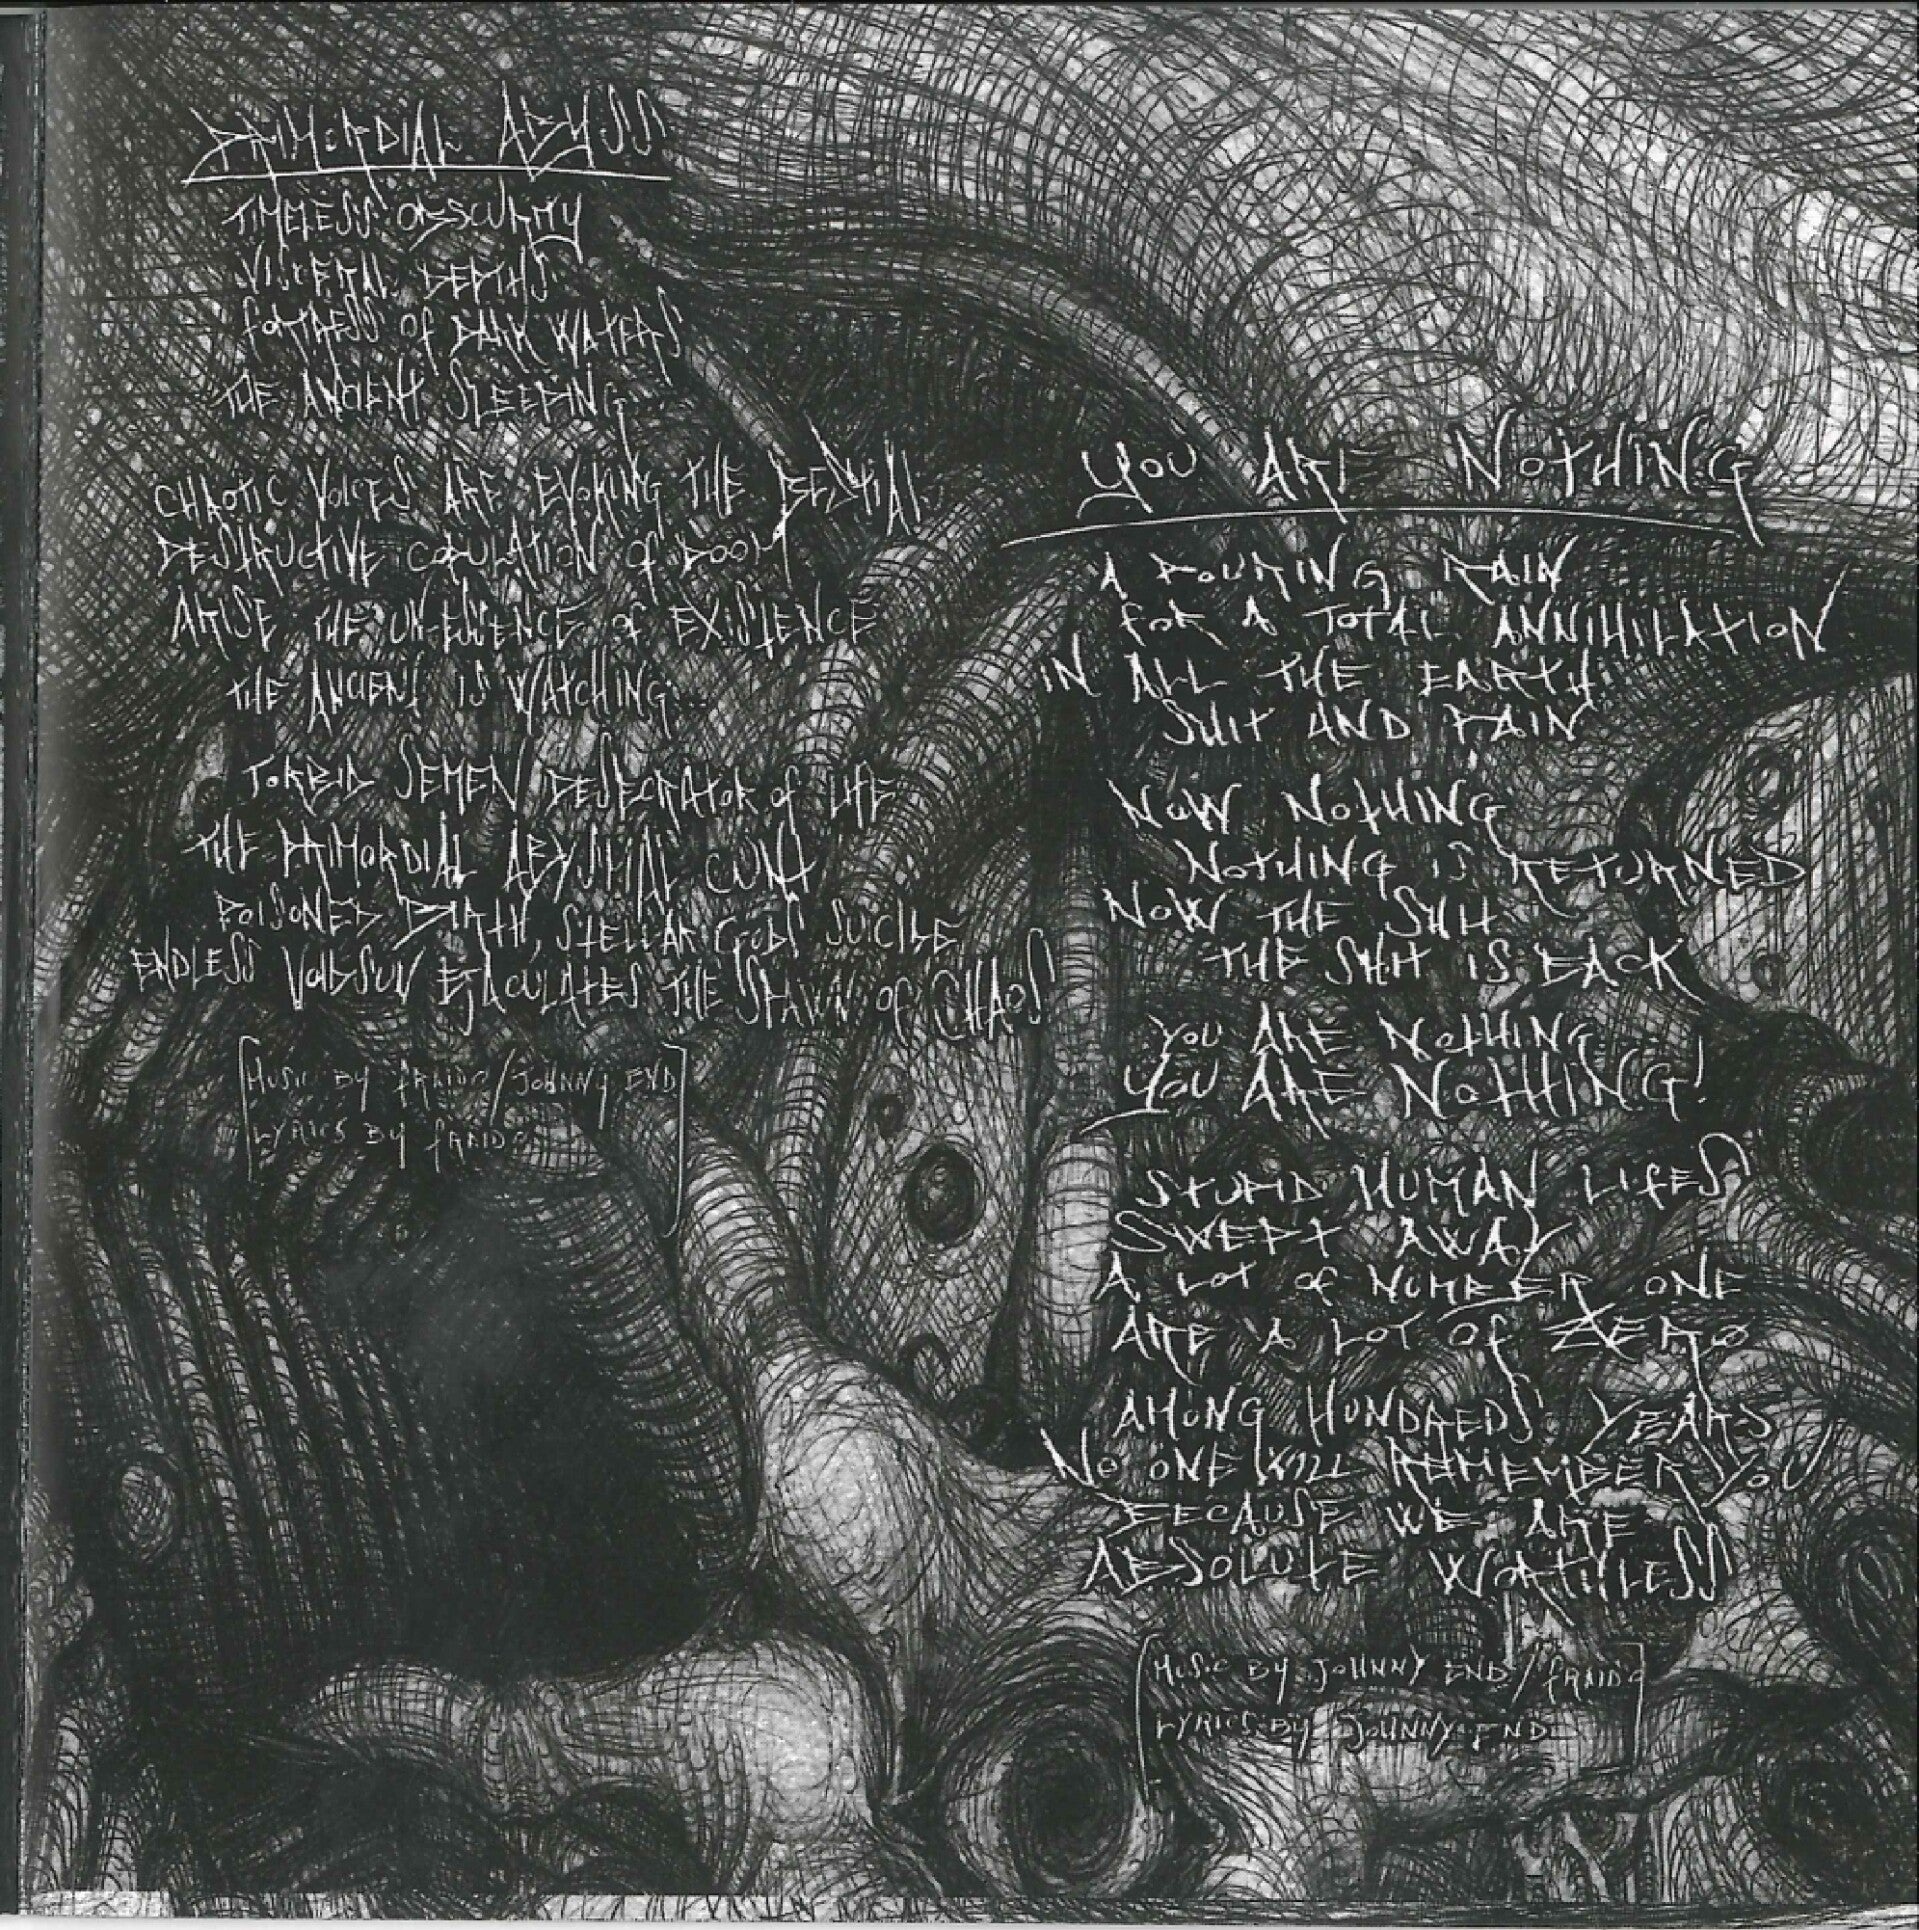 PRIMORDIAL ABYSS
TIMELESS OBSCURITY
VISCERAL DEPTHS
FORTRESS OF DARK WATERS
THE ANCIENT SLEEPING...
CHAOTIC VOICES ARE EVOKING THE BESTIAL
DESTRUCTIVE COPULATION OF DOOM
ARISE THE UN-ESSENCE OF EXISTENCE
THE ANCIENT IS WATCHING...
TORBID SEMEN DESECRATOR OF LIFE
THE PRIMORDIAL ABYSMAL CUNT
POISONED BIRTH, STELLAR GODS SUICIDE
ENDLESS EJACULATES THE SPAWN OF CHAOS
[MUSIC BY FRAIDO/JOHNNY END
LYRICS BY FRAIDO]
YOU ARE NOTHING
A POURING RAIN
FOR A TOTAL ANNIHILATION
IN ALL THE EARTH
SHIT AND PAIN
NOW NOTHING
NOTHING IS RETURNED
NOW THE SHIT
THE SHIT IS BACK
YOU ARE NOTHING
YOU ARE NOTHING!
STUPID HUMAN LIFES
SWEPT AWAY
A LOT OF NUMBER ONE
ARE A LOT OF ZERO
AMONG HUNDREDS YEARS
NO ONE WILL REMEMBER YOU
BECAUSE WE ARE
ABSOLUTE WORTHLESS
[MUSIC BY JOHNNY END/FRAIDO
LYRICS BY JOHNNY END]